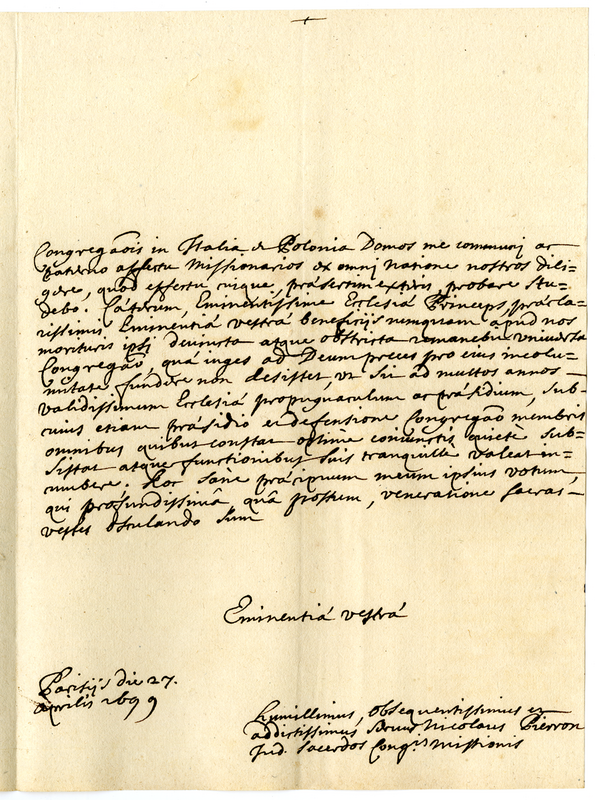 Congregãois in Italia & Polonia Domos me communi ac
paterno affectu Missionarios ex omni natione nostros dili=
gere, quod effectu cuique, præsertim exteris, probare stu=
debo. Cæterum, Eminentissime Ecclesiæ Princeps, præcla=
rissimis Eminentiæ vestræ beneficijs nunquam apud nos
morituris ipsi devincta atque obstricta remanebit universa
Congregão, quæ iuges ad Deum preces pro eius incolu=
mitate fundere non desistet, ut sit ad multos annos
validissimum Ecclesiæ propugnaculum ac præsidium, sub
cuius etiam præsidio et defensione Congregão membris
omnibus quibus constat optime coniunctis quietè sub=
sistat atque functionibus suis tranquille valeat in=
cumbere. Hoc sanè præcipuum meum ipsius votum,
qui profundissimâ, quâ possum, veneratione sacras
vestes osculando sum
Eminentiæ vestræ
Parisijs die 27.
Aprilis 1699
humillimus, obsequentissimus et
addictissimus servus Nicolaus Pierron
Ind. sacerdos Cong.is Missionis